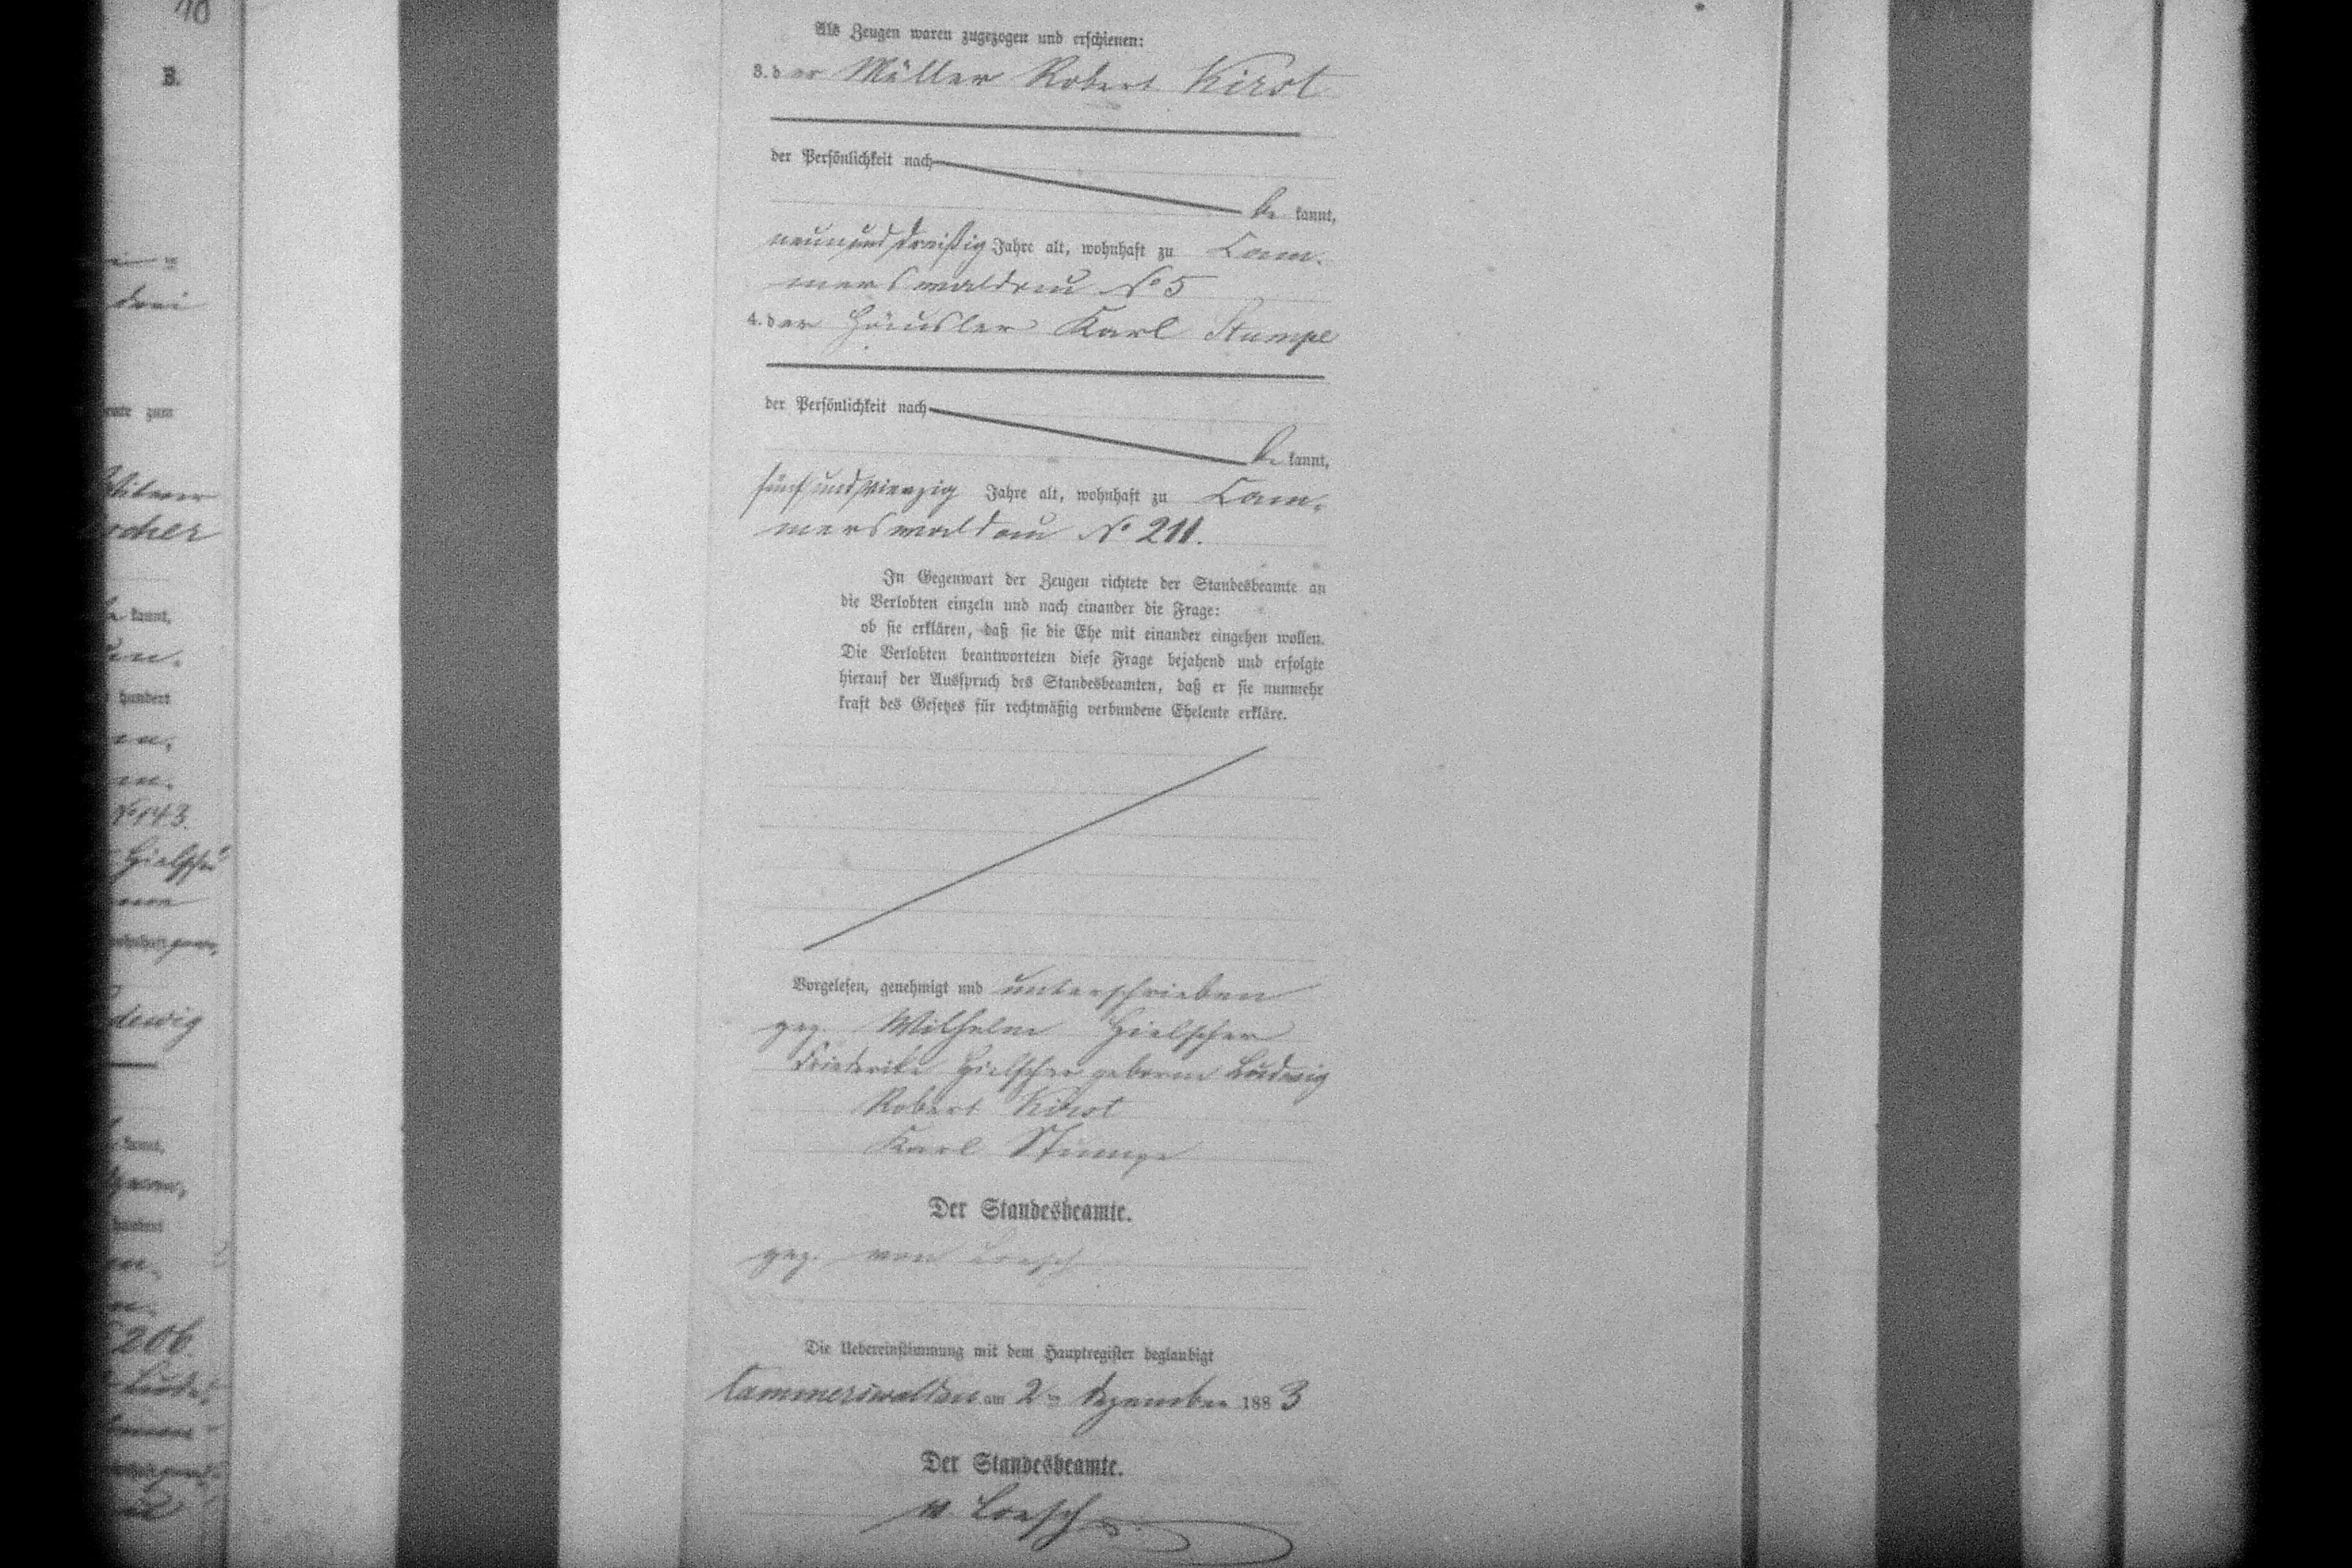 10
B.
drei
zum
kannt,
hundert
No 143.
206
Als Zeugen waren zugezogen und erschienen:
3. der Müller Robert Kirst
der Persönlichkeit nach
be kannt,
neun und dreißig Jahre alt, wohnhaft zu Cam-
merswaldau No 5
4. der Häusler Karl Stumpe
der Persönlichkeit nach
be kannt,
fünf und vierzig Jahre alt, wohnhaft zu Cam-
merswaldau No 211.
In Gegenwart der Zeugen richtete der Standesbeamte an
die Verlobten einzeln und nach einander die Frage:
ob sie erklären, daß sie die Ehe mit einander eingehen wollen.
Die Verlobten beantworteten diese Frage bejahend und erfolgte
hierauf der Ausspruch des Standesbeamten, daß er sie nunmehr
kraft des Gesetzes für rechtmäßig verbundene Eheleute erkläre.
Vorgelesen, genehmigt und unterschrieben
gez. Wilhelm Hielscher
Friederike Hielscher geborne Ludwig
Robert Kirst
Karl Stumpe
Der Standesbeamte.
gez. von Loesch
Die Uebereinstimmung mit dem Hauptregister beglaubigt
Cammerswaldau am 2ten Dezember 1883
Der Standesbeamte.
v Loesch